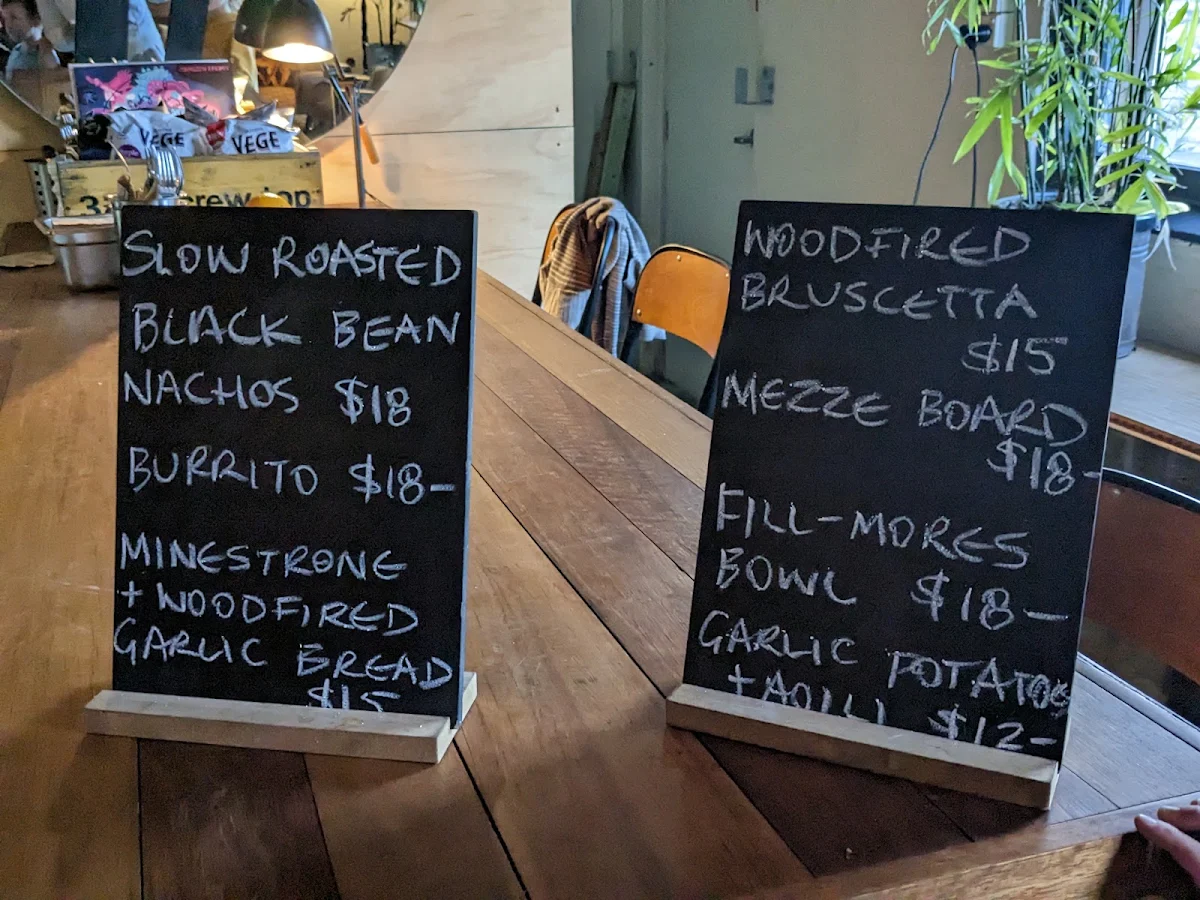 VEGE
VEGE
SLOW ROASTED
BLACK BEAN
NACHOS $18
BURRITO $18-
MINESTRONE
+ WOODFIRED
GARLIC BREAD
$15
WOODFIRED
BRUSCETTA
$15
MEZZE BOARD
$18-
FILL-MORES
BOWL $18-
GARLIC POTATOES
+ AOILI $12-